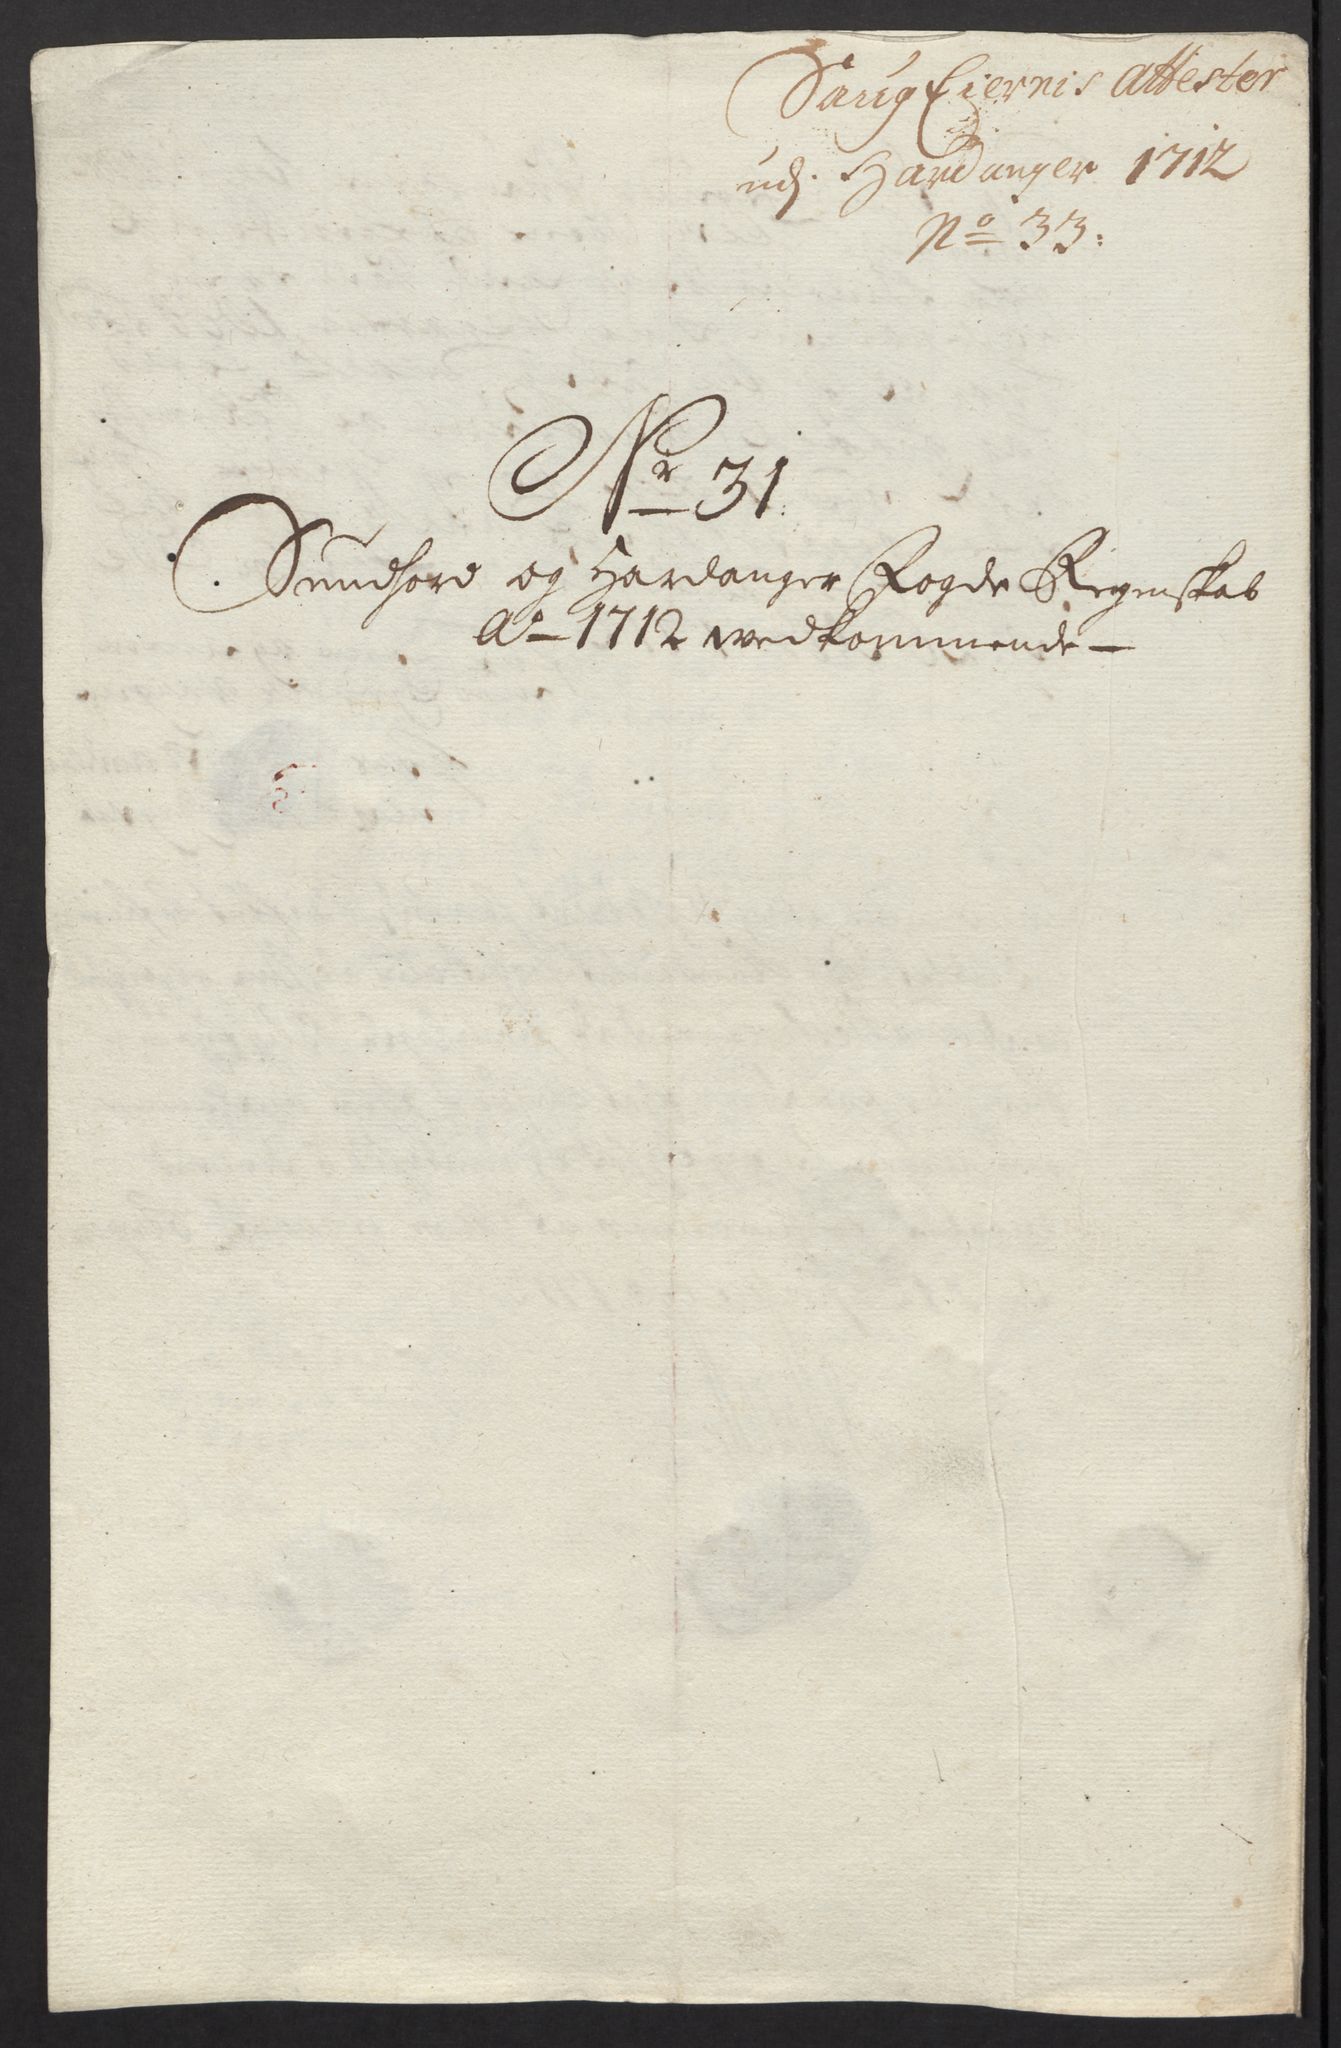 Saug Eiernis Attester
udj. Hardanger 1712
No 33:
Nr 31.
Sundhord og Hardanger Fogde Regenskab
Ao 1712 wedkommende—